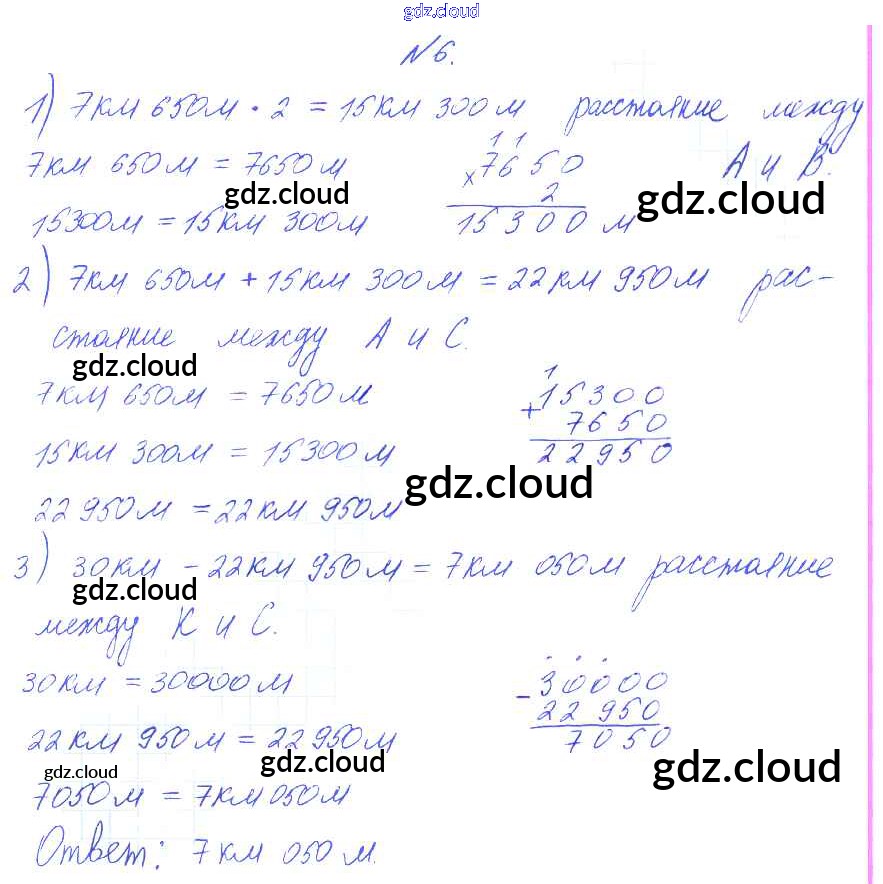 gdz.cloud
№6.
1) 7км 650м · 2 = 15км 300м расстояние между
А и В.
7км 650м = 7650м
1 1
× 7650
2
15300 м
gdz.cloud gdz.cloud
15300м = 15км 300м
2) 7км 650м + 15км 300м = 22км 950м рас-
стояние между А и С.
gdz.cloud
7км 650м = 7650м
1
+ 15300
7650
22950
15км 300м = 15300м
gdz.cloud
22 950м = 22км 950м
3) 30км - 22км 950м = 7км 050м расстояние
gdz.cloud
между К и С.
30км = 30000м
- 30000
22 950
7050
22 км 950м = 22950м
gdz.cloud gdz.cloud gdz.cloud
7050м = 7км 050м
Ответ: 7км 050м.